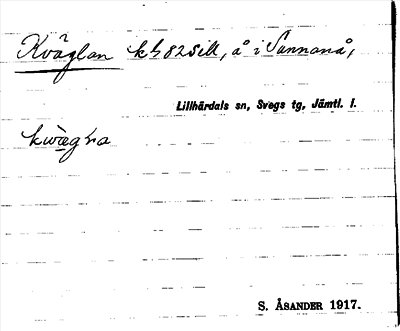 Kväglan kb 82 StU, å i Sunnanå,
Lillhärdals sn, Svegs tg, Jämtl. l.
kwægra
S. ÅSANDER 1917.